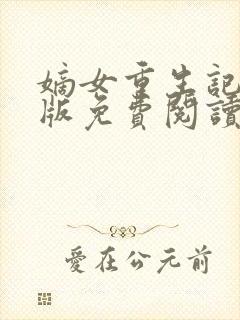 嫡女重生記
版免費閱讀
愛在公元前